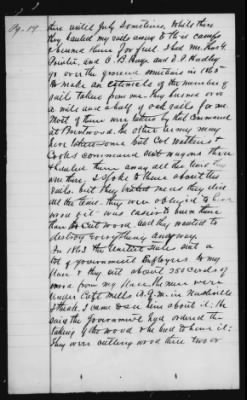 Pg. 19
there until July sometime, whilst there
they hauled my rails away to their camps
& burned them for fuel. I had Mr.
and C. B. Hays and J. P. Hadley
go over the ground sometime in 1865
to make an estimate of the number of
rails taken from me. They burned over
a mile and a half of oak rails for me.
Most of them were taken by that command
at Brentwood. The other army may
have taken some but Col Watkins &
Cooks command
hauled them away all the time they
were there. I spoke to them about the
rails. but they told me they did
all the time. they were obliged to have
wood get was easier to burn them
than to cut wood. and they wanted to
destroy everything anyway.
In 1863 the United States sent a
lot of government employees to my
place & they cut about 3500 cords of
wood from my place, the men were
under Capt Mills A.Q.M. in Nashville
I think, I came to see him about it; He
said the government had ordered the
taking of the wood & he had to have it;
They were cutting wood there two or